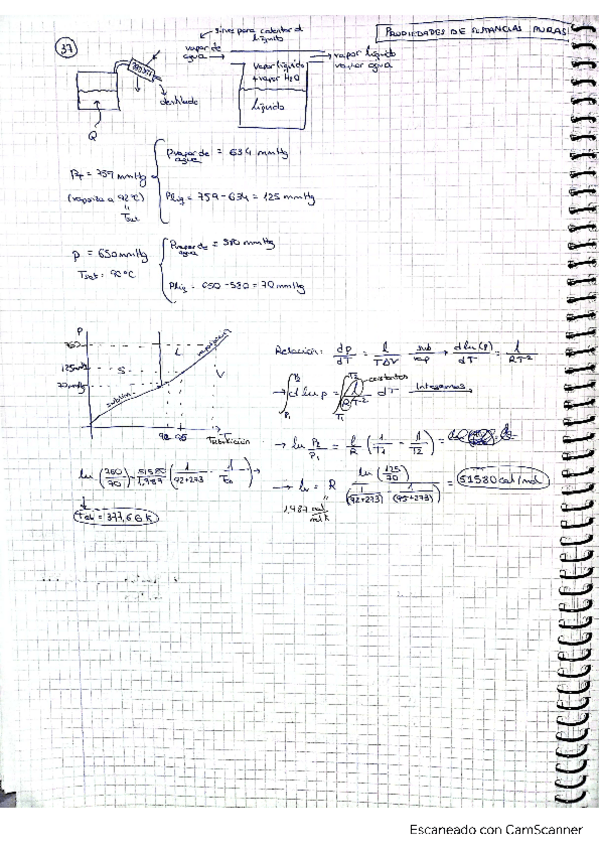 PROPIEDADES DE SUSTANCIAS PURAS
37
sirve para calentar el líquido
vapor de agua
vapor líquido
vapor agua
vapor líquido
+ vapor H2O
líquido
destilado
Q
PT = 759 mmHg
(vaporiza a 92°C)
Tsat
Pvapor de agua = 634 mmHg
Pliq = 759 - 634 = 125 mmHg
P = 650 mmHg
Tsat = 92°C
Pvapor de agua = 580 mmHg
Pliq = 650 - 580 = 70 mmHg
P
760
125
70 mmHg
S
L
V
sublim
vaporización
92 95
T
Tebullición
Relación: dp/dT = l/(TΔV) sub vap → d ln(p)/dT = l/(RT^2)
→ ∫P1^P2 d ln p = ∫T1^T2 l/(RT^2) dT constantes Integramos
→ ln P2/P1 = l/R (1/T1 - 1/T2) =
→ lv = R ln(125/70) / (1/(92+273) - 1/(95+273)) = 51580 cal/mol
1,987 cal/mol K
ln(760/70) = 51580/1,987 (1/(92+273) - 1/Teb) →
Teb = 377,66 K
Escaneado con CamScanner